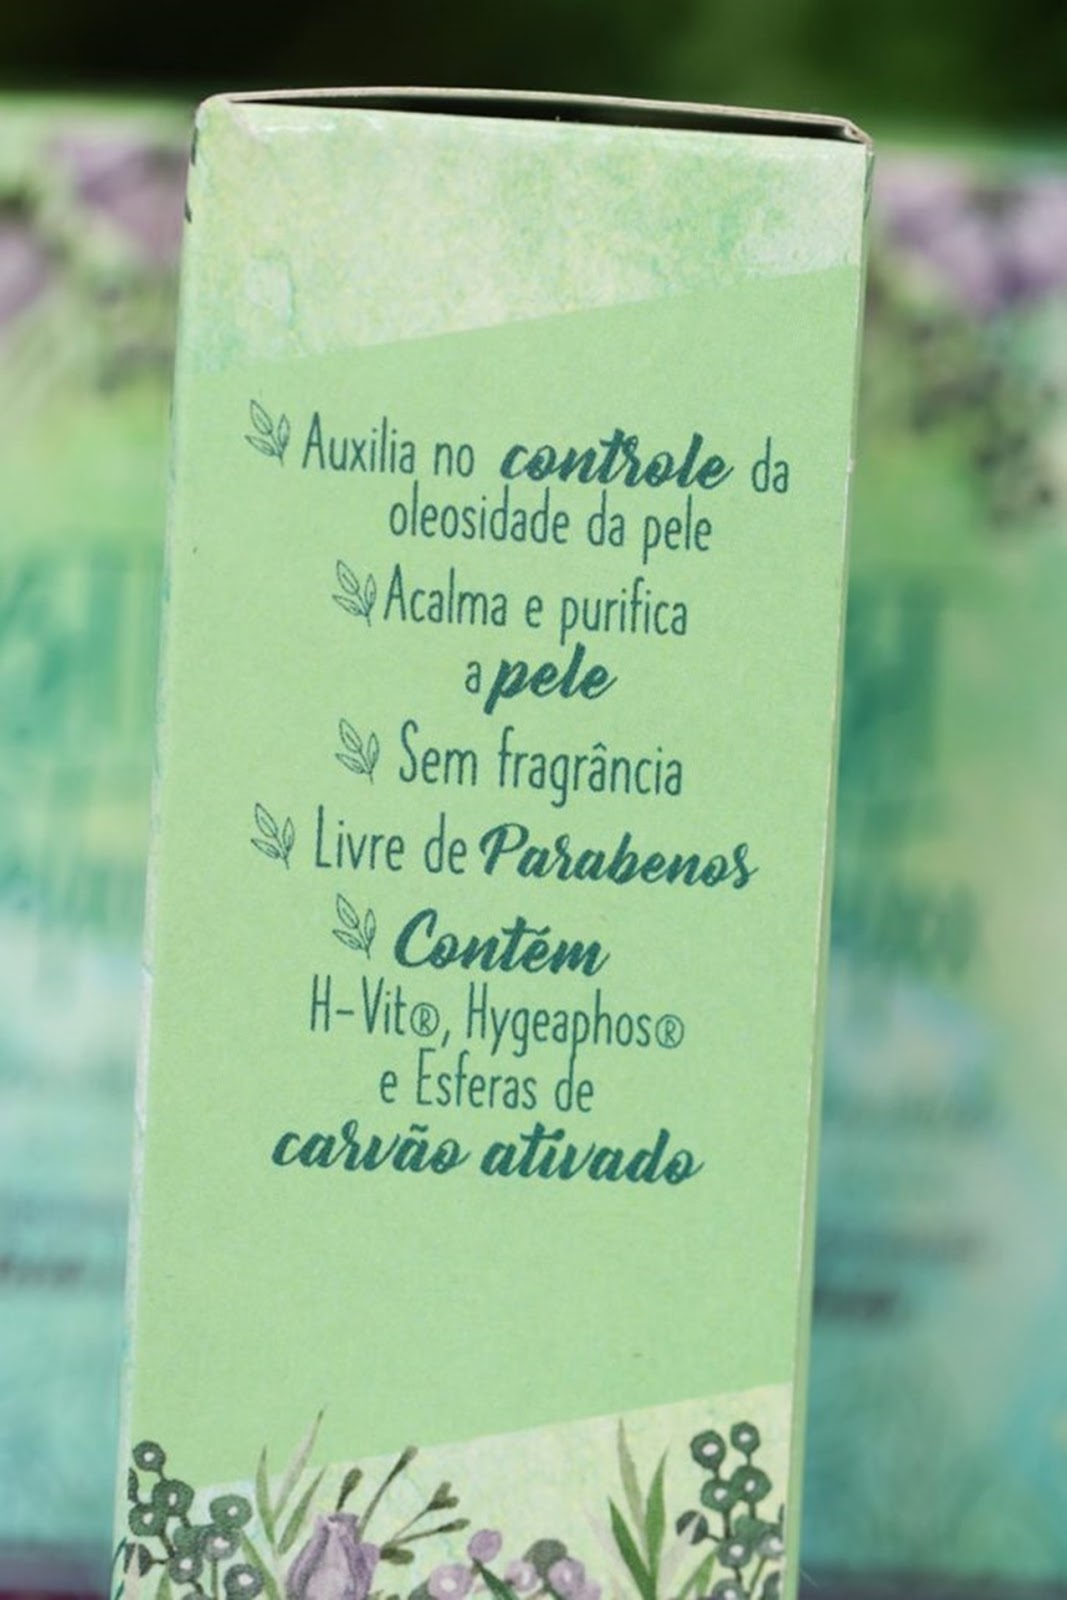 Auxilia no controle da
oleosidade da pele
Acalma e purifica
a pele
Sem fragrância
Livre de Parabenos
Contém
H-Vit®, Hygeaphos®
e Esferas de
carvão ativado